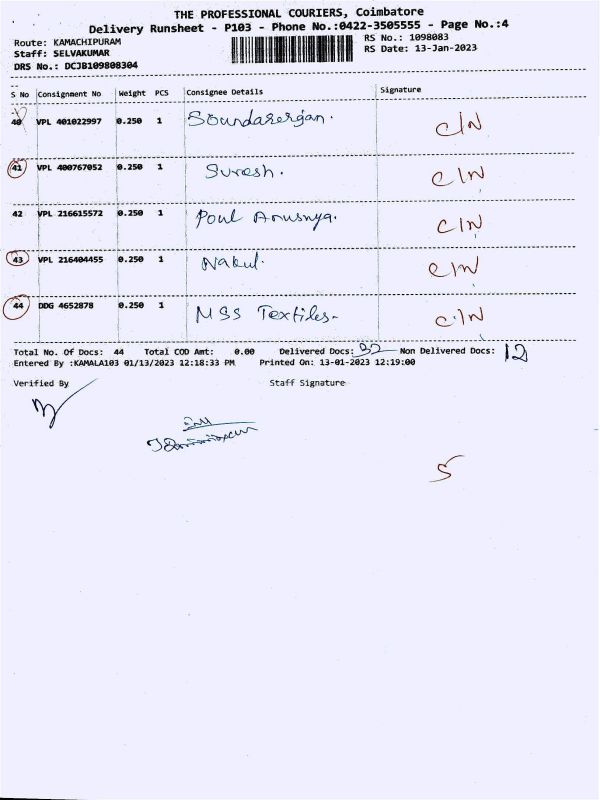 THE PROFESSIONAL COURIERS, Coimbatore
Delivery Runsheet - P103 - Phone No.:0422-3505555 - Page No.:4
Route: KAMACHIPURAM RS No.: 1098083
Staff: SELVAKUMAR RS Date: 13-Jan-2023
DRS No.: DCJB109808304
S No Consignment No Weight PCS Consignee Details Signature
40 VPL 401022997 0.250 1 C/N
41 VPL 400767052 0.250 1 Suresh. C/N
42 VPL 216615572 0.250 1 Poul C/N
43 VPL 216404455 0.250 1 Nakul. C/N
44 DDG 4652878 0.250 1 MSS Textiles- C/N
Total No. Of Docs: 44 Total COD Amt: 0.00 Delivered Docs: 32 Non Delivered Docs: 12
Entered By :KAMALA103 01/13/2023 12:18:33 PM Printed On: 13-01-2023 12:19:00
Verified By Staff Signature
5